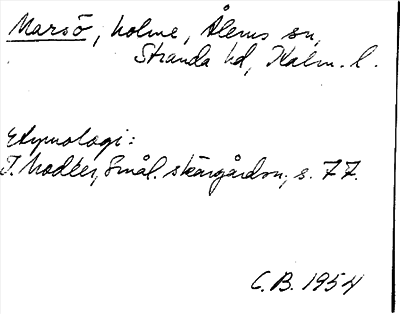 Marsö, holme, Ålems sn,
Stranda hd, Kalm. l.
Etymologi:
I. Modéer, Smål. skärgårdsn., s. 77.
C.B. 1954